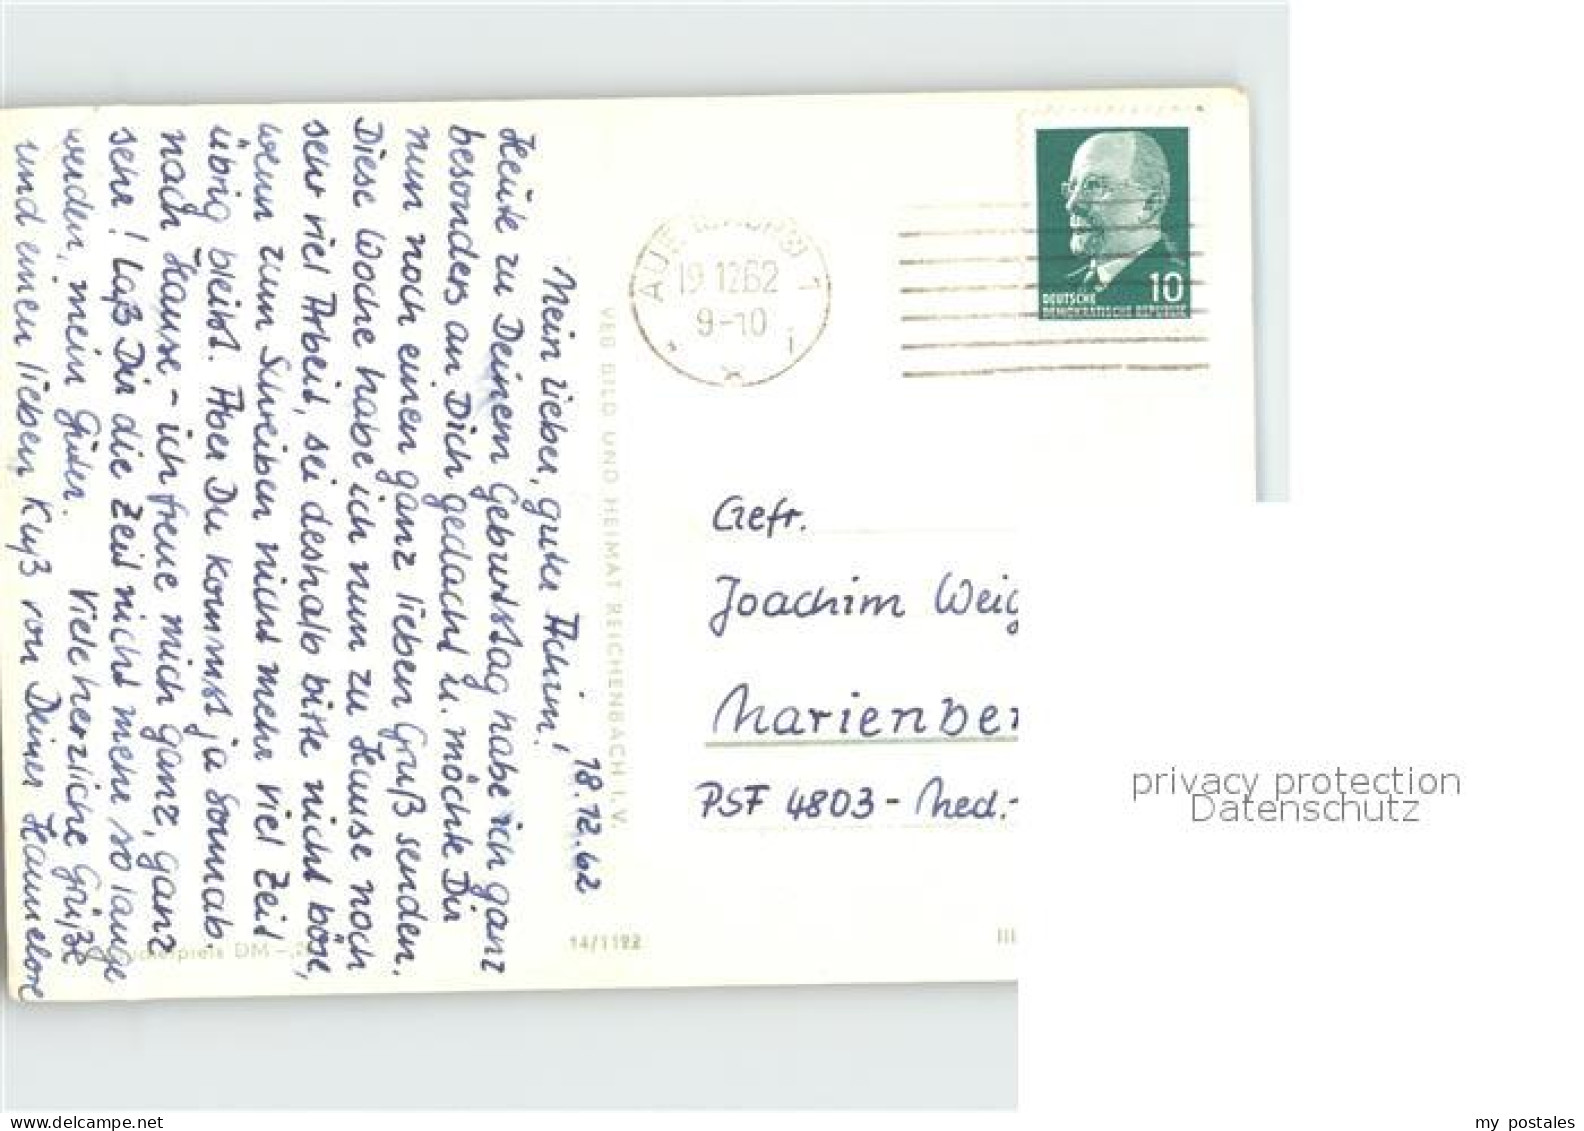 18.12.62
Mein lieber, guter Achim!
Heute zu Deinem Geburtstag habe ich ganz
besonders an Dich gedacht u. möchte Dir
nun noch einen ganz lieben Gruß senden.
Diese Woche habe ich nun zu Hause noch
sehr viel Arbeit, sei deshalb bitte nicht böse,
wenn zum Schreiben nicht mehr viel Zeit
übrig bleibt. Aber Du kommst ja Sonnab.
nach Hause - ich freue mich ganz, ganz
sehr! Laß Dir die Zeit nicht mehr so lange
werden, mein Guter. Viele herzliche Grüße
und einen lieben Kuß von Deiner Hannelore
VEB BILD UND HEIMAT REICHENBACH I. V.
14/1192
DM -,2
AUE (SACHS) 1
19.12.62
9-10
i
10
DEUTSCHE
DEMOKRATISCHE REPUBLIK
Gefr.
Joachim Weig
Marienber
PSF 4803 - Med.-
III
privacy protection
Datenschutz
my postales